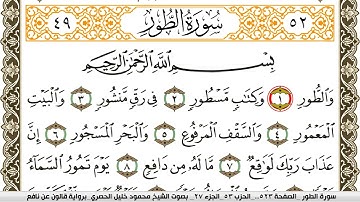 ٥٢ سُورَةُ الطُّورِ ٤٩
بِسْمِ اللَّهِ الرَّحْمَٰنِ الرَّحِيمِ
وَالطُّورِ ١ وَكِتَٰبٍ مَّسْطُورٍ ٢ فِي رَقٍّ مَّنشُورٍ ٣ وَالْبَيْتِ
الْمَعْمُورِ ٤ وَالسَّقْفِ الْمَرْفُوعِ ٥ وَالْبَحْرِ الْمَسْجُورِ ٦ إِنَّ
عَذَابَ رَبِّكَ لَوَٰقِعٌ ٧ مَّا لَهُ مِن دَافِعٍ ٨ يَوْمَ تَمُورُ السَّمَآءُ
سورة الطور _الصفحة ٥٢٣_ الحزب ٥٣_الجزء ٢٧_ بصوت الشيخ محمود خليل الحصري _برواية قالون عن نافع